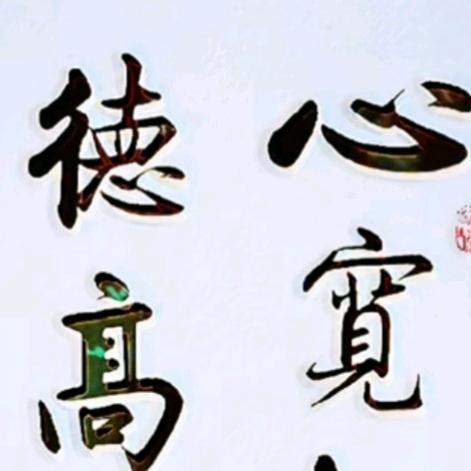 心寬
德高